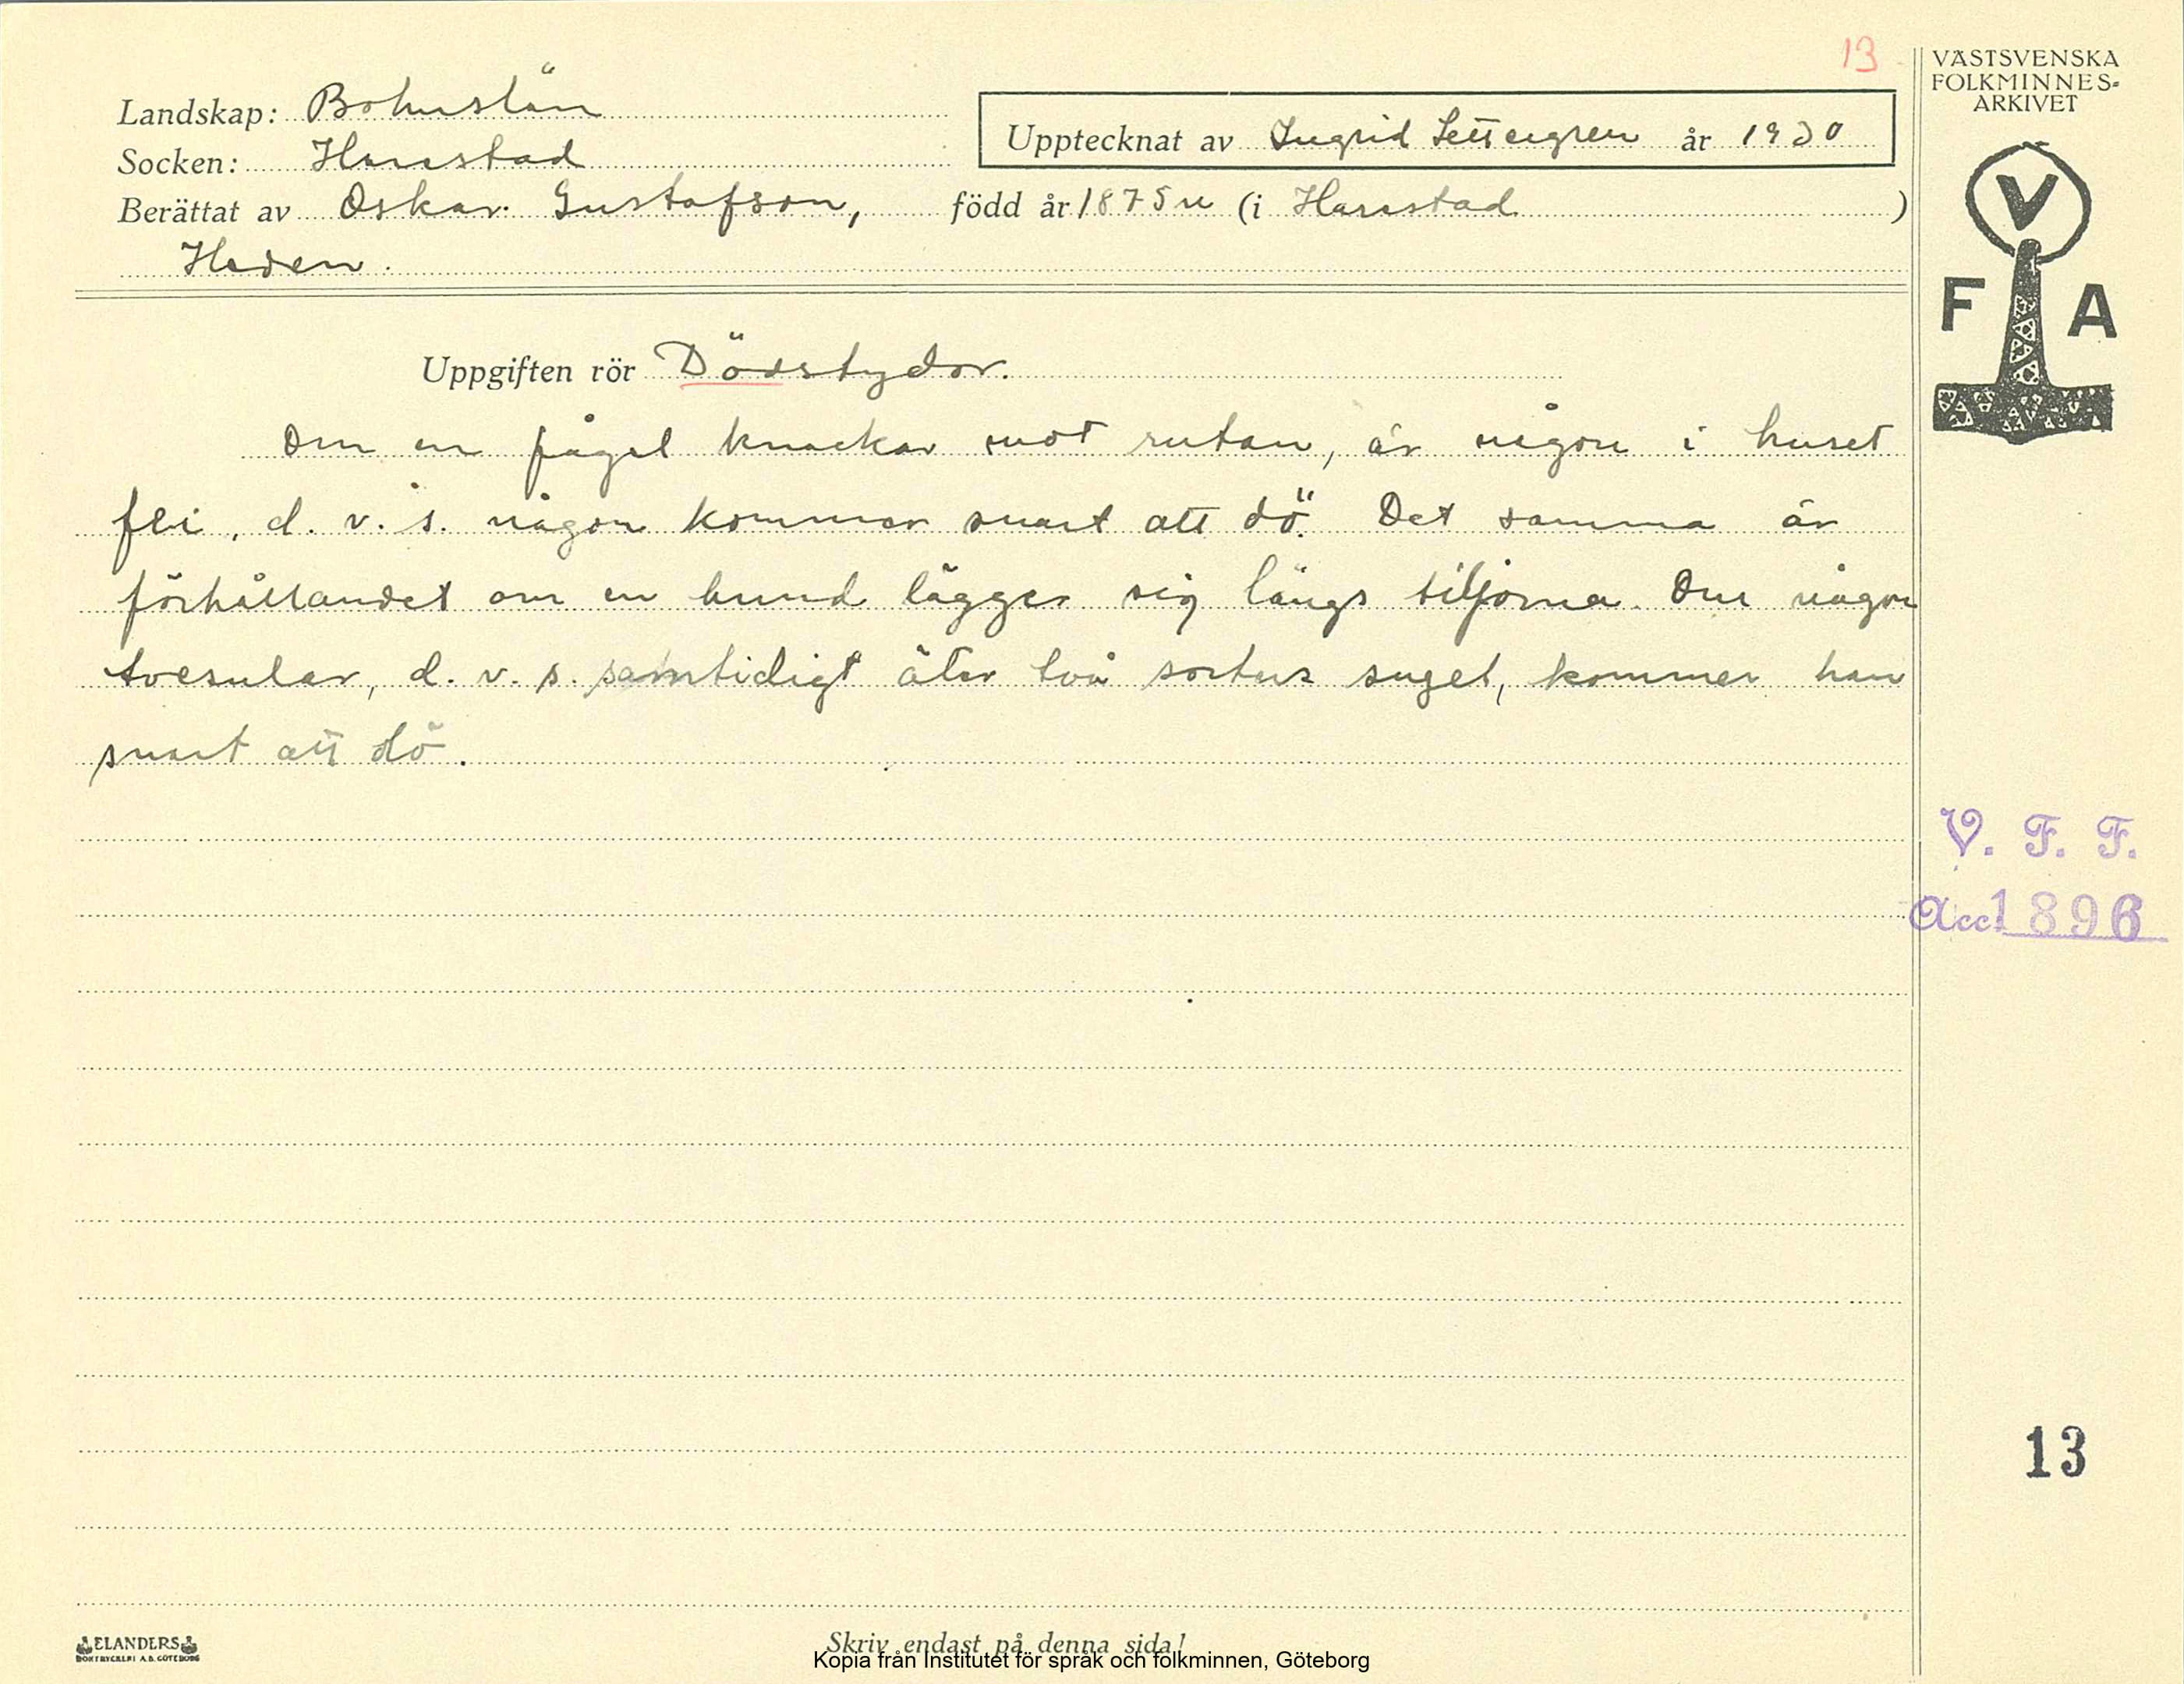 13
VÄSTSVENSKA
FOLKMINNES-
ARKIVET
Landskap: Bohuslän
Upptecknat av Ingrid Settergren år 1930
Socken: Harestad
Berättat av Oskar Gustafson, född år 1875 (i Harestad )
Heden.
V
F A
Uppgiften rör Dödstydor.
Om en fågel knackar mot rutan, är någon i huset
fei, d. v. s. någon kommer snart att dö. Det samma är
förhållandet om en hund lägger sig längs tiljorna. Om någon
tvesular, d. v. s. samtidigt äter två sorters sugel, kommer han
snart att dö.
V. F. F.
Acc. 1896
13
ELANDERS
BOKTRYCKERI A.B. GÖTEBORG
Skriv endast på denna sida!
Kopia från Institutet för språk och folkminnen, Göteborg